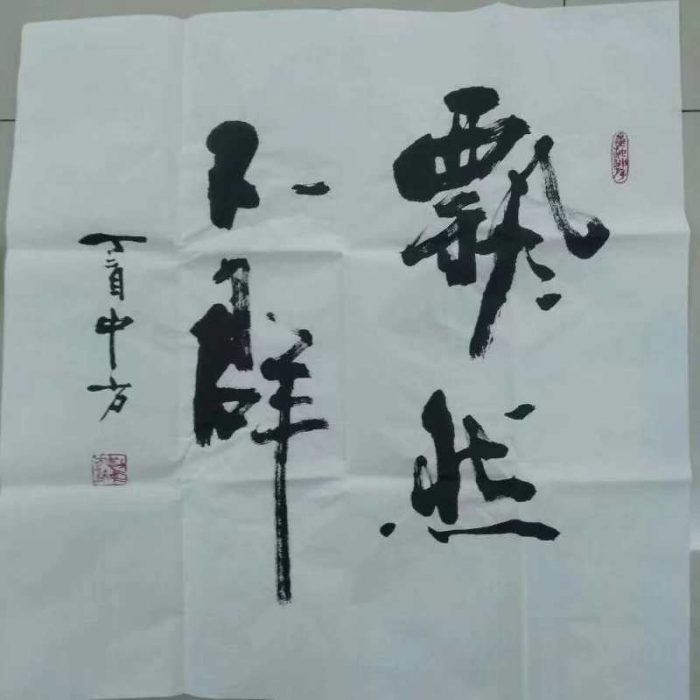 飄然
不群
丁酉中方